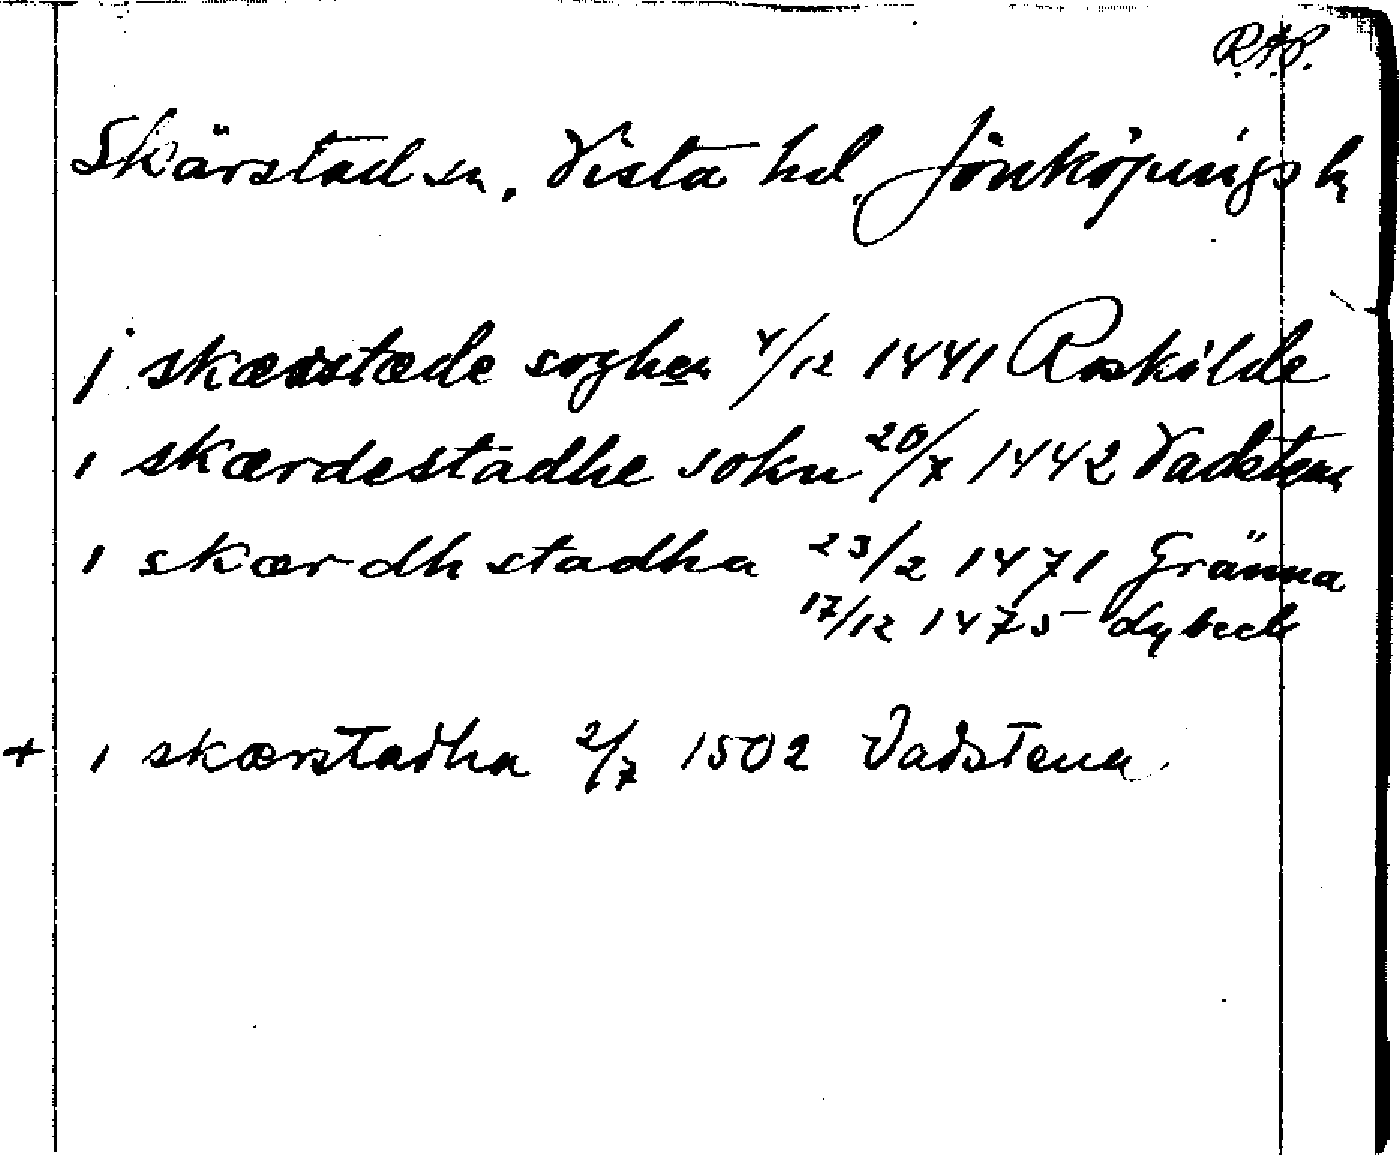 R.A.P.
Skärstad sn, Vista hd, Jönköpings l.
j skærstæde soghen 4/12 1441 Roskilde
i skærdestadhe sokn 20/7 1442 Vadstena
i skærdhstadha 23/2 1471 Gränna
17/12 1475 dybeck
+ i skærstadha 2/7 1502 Vadstena